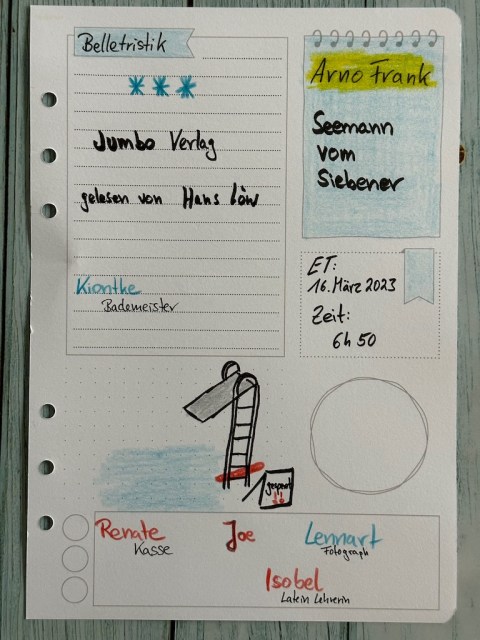 Belletristik
***
Jumbo Verlag
gelesen von Hans Löw
Kiontke
Bademeister
Arno Frank
Seemann
vom
Siebener
ET:
16. März 2023
Zeit:
6h 50
gesperrt
Renate
Kasse
Joe
Lennart
Fotograph
Isobel
Latein Lehrerin